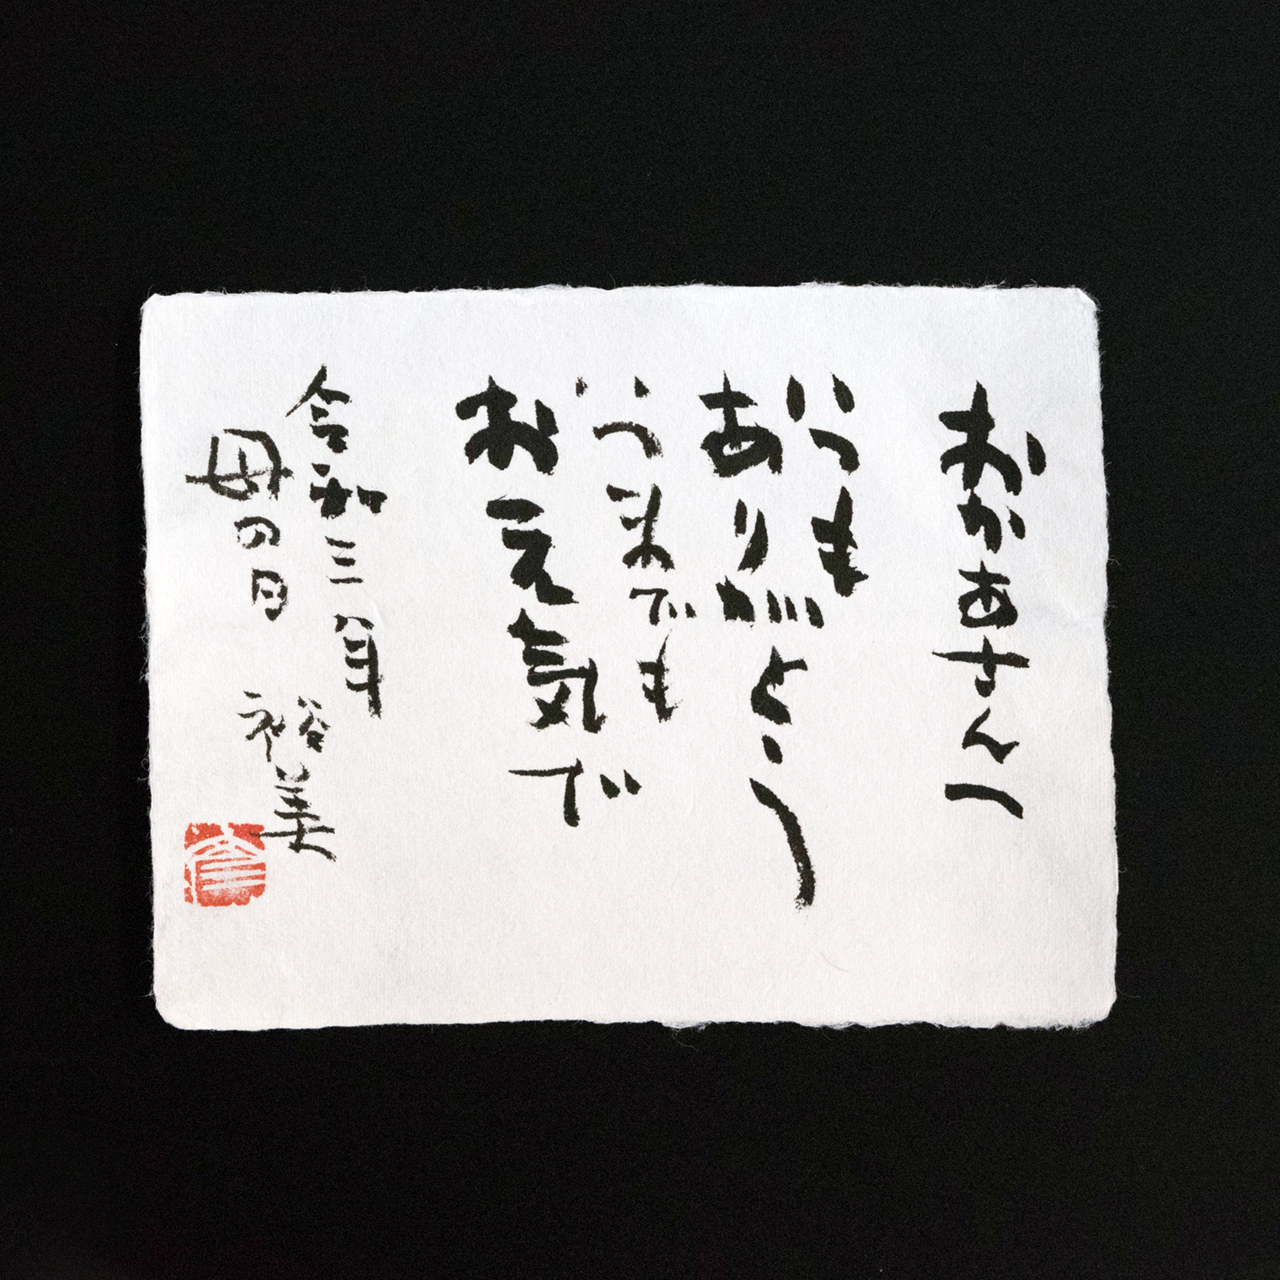 おかあさんへ
いつも
ありがとう
いつまでも
お元気で
令和三年
母の日
裕美